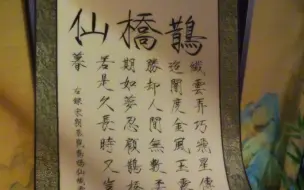 鵲橋仙
纖雲弄巧飛星傳
迢闇度金風玉
勝却人間無數柔
期如夢忍顧鵲橋
若是久長時又豈
暮